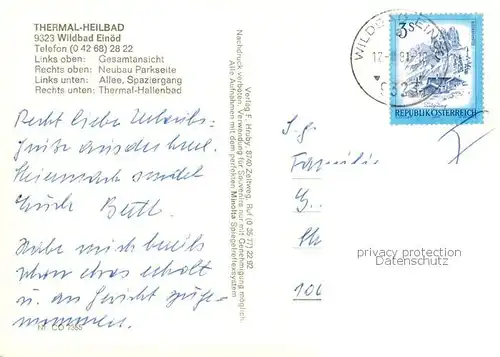 THERMAL-HEILBAD
9323 Wildbad Einöd
Telefon (0 42 68) 28 22
Links oben: Gesamtansicht
Rechts oben: Neubau Parkseite
Links unten: Allee, Spaziergang
Rechts unten: Thermal-Hallenbad
Recht liebe Urlaubs-
grüße aus der
Steiermark sendet
Euch
Habe mich bereits
schon etwas erholt
u. an Gewicht zuge-
nommen.
Nr. CO 7355
Verlag F. Hruby, 8740 Zeltweg, Ruf (0 35 77) 22 92
Nachdruck verboten. Verwendung für Souvenirs nur mit Genehmigung möglich.
Alle Aufnahmen mit dem perfekten Minolta Spiegelreflexsystem
WILDBAD EINÖD
9323
3s
REPUBLIK ÖSTERREICH
S. g.
Familie
privacy protection
Datenschutz